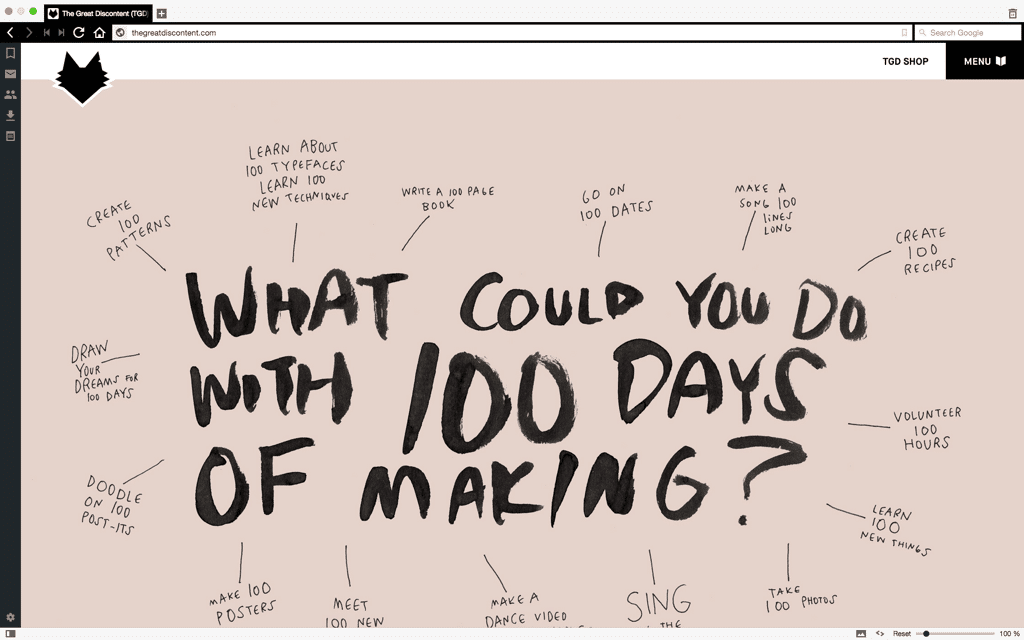 The Great Discontent (TGD)
thegreatdiscontent.com
Search Google
TGD SHOP
MENU
LEARN ABOUT
100 TYPEFACES
LEARN 100
NEW TECHNIQUES
CREATE
100
PATTERNS
WRITE A 100 PAGE
BOOK
GO ON
100 DATES
MAKE A
SONG 100
LINES
LONG
CREATE
100
RECIPES
WHAT COULD YOU DO
WITH 100 DAYS
OF MAKING?
DRAW
YOUR
DREAMS FOR
100 DAYS
VOLUNTEER
100
HOURS
DOODLE
ON 100
POST-ITS
LEARN
100
NEW THINGS
MAKE 100
POSTERS
MEET
100 NEW
MAKE A
DANCE VIDEO
SING
THE
TAKE
100 PHOTOS
Reset
100 %